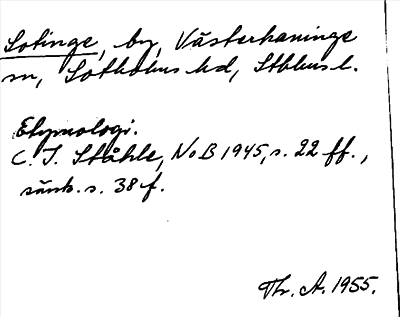 Sotinge, by, Västerhaninge
sn, Sotholms hd, Sthlms l.
Etymologi.
C. I. Ståhle, NoB 1945, s. 22 ff.,
särsk. s. 38 f.
Thr. A. 1955.